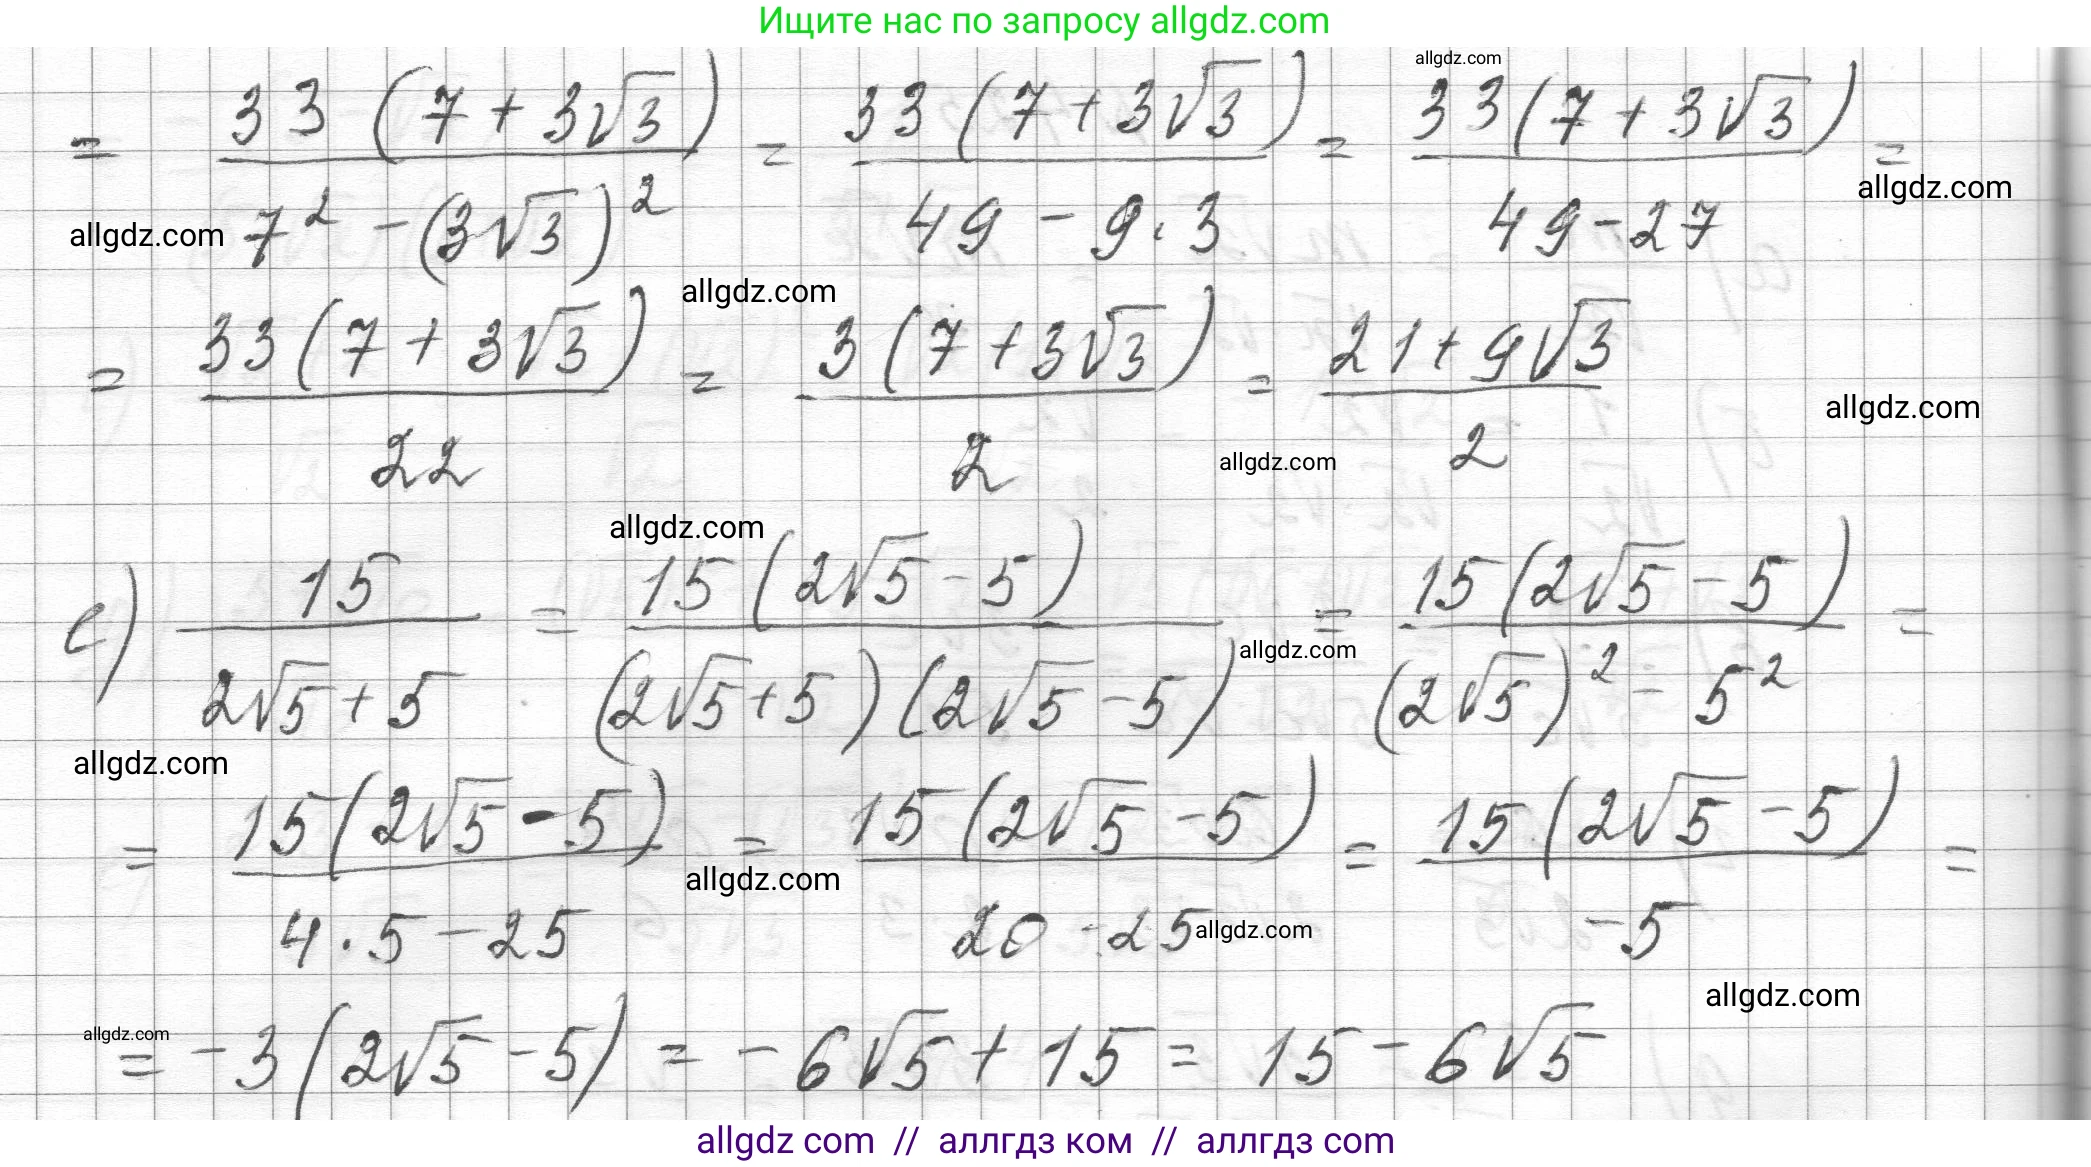 Ищите нас по запросу allgdz.com
allgdz.com
= 33(7+3√3) / 7² − (3√3)² = 33(7+3√3) / 49 − 9·3 = 33(7+3√3) / 49−27 =
allgdz.com
allgdz.com
allgdz.com
= 33(7+3√3) / 22 = 3(7+3√3) / 2 = 21+9√3 / 2
allgdz.com
allgdz.com
allgdz.com
е) 15 / 2√5+5 = 15(2√5−5) / (2√5+5)(2√5−5) = 15(2√5−5) / (2√5)² − 5² =
allgdz.com
allgdz.com
= 15(2√5−5) / 4·5−25 = 15(2√5−5) / 20−25 = 15(2√5−5) / −5 =
allgdz.com
allgdz.com
allgdz.com
allgdz.com
= −3(2√5−5) = −6√5+15 = 15−6√5
allgdz com // аллгдз ком // аллгдз com